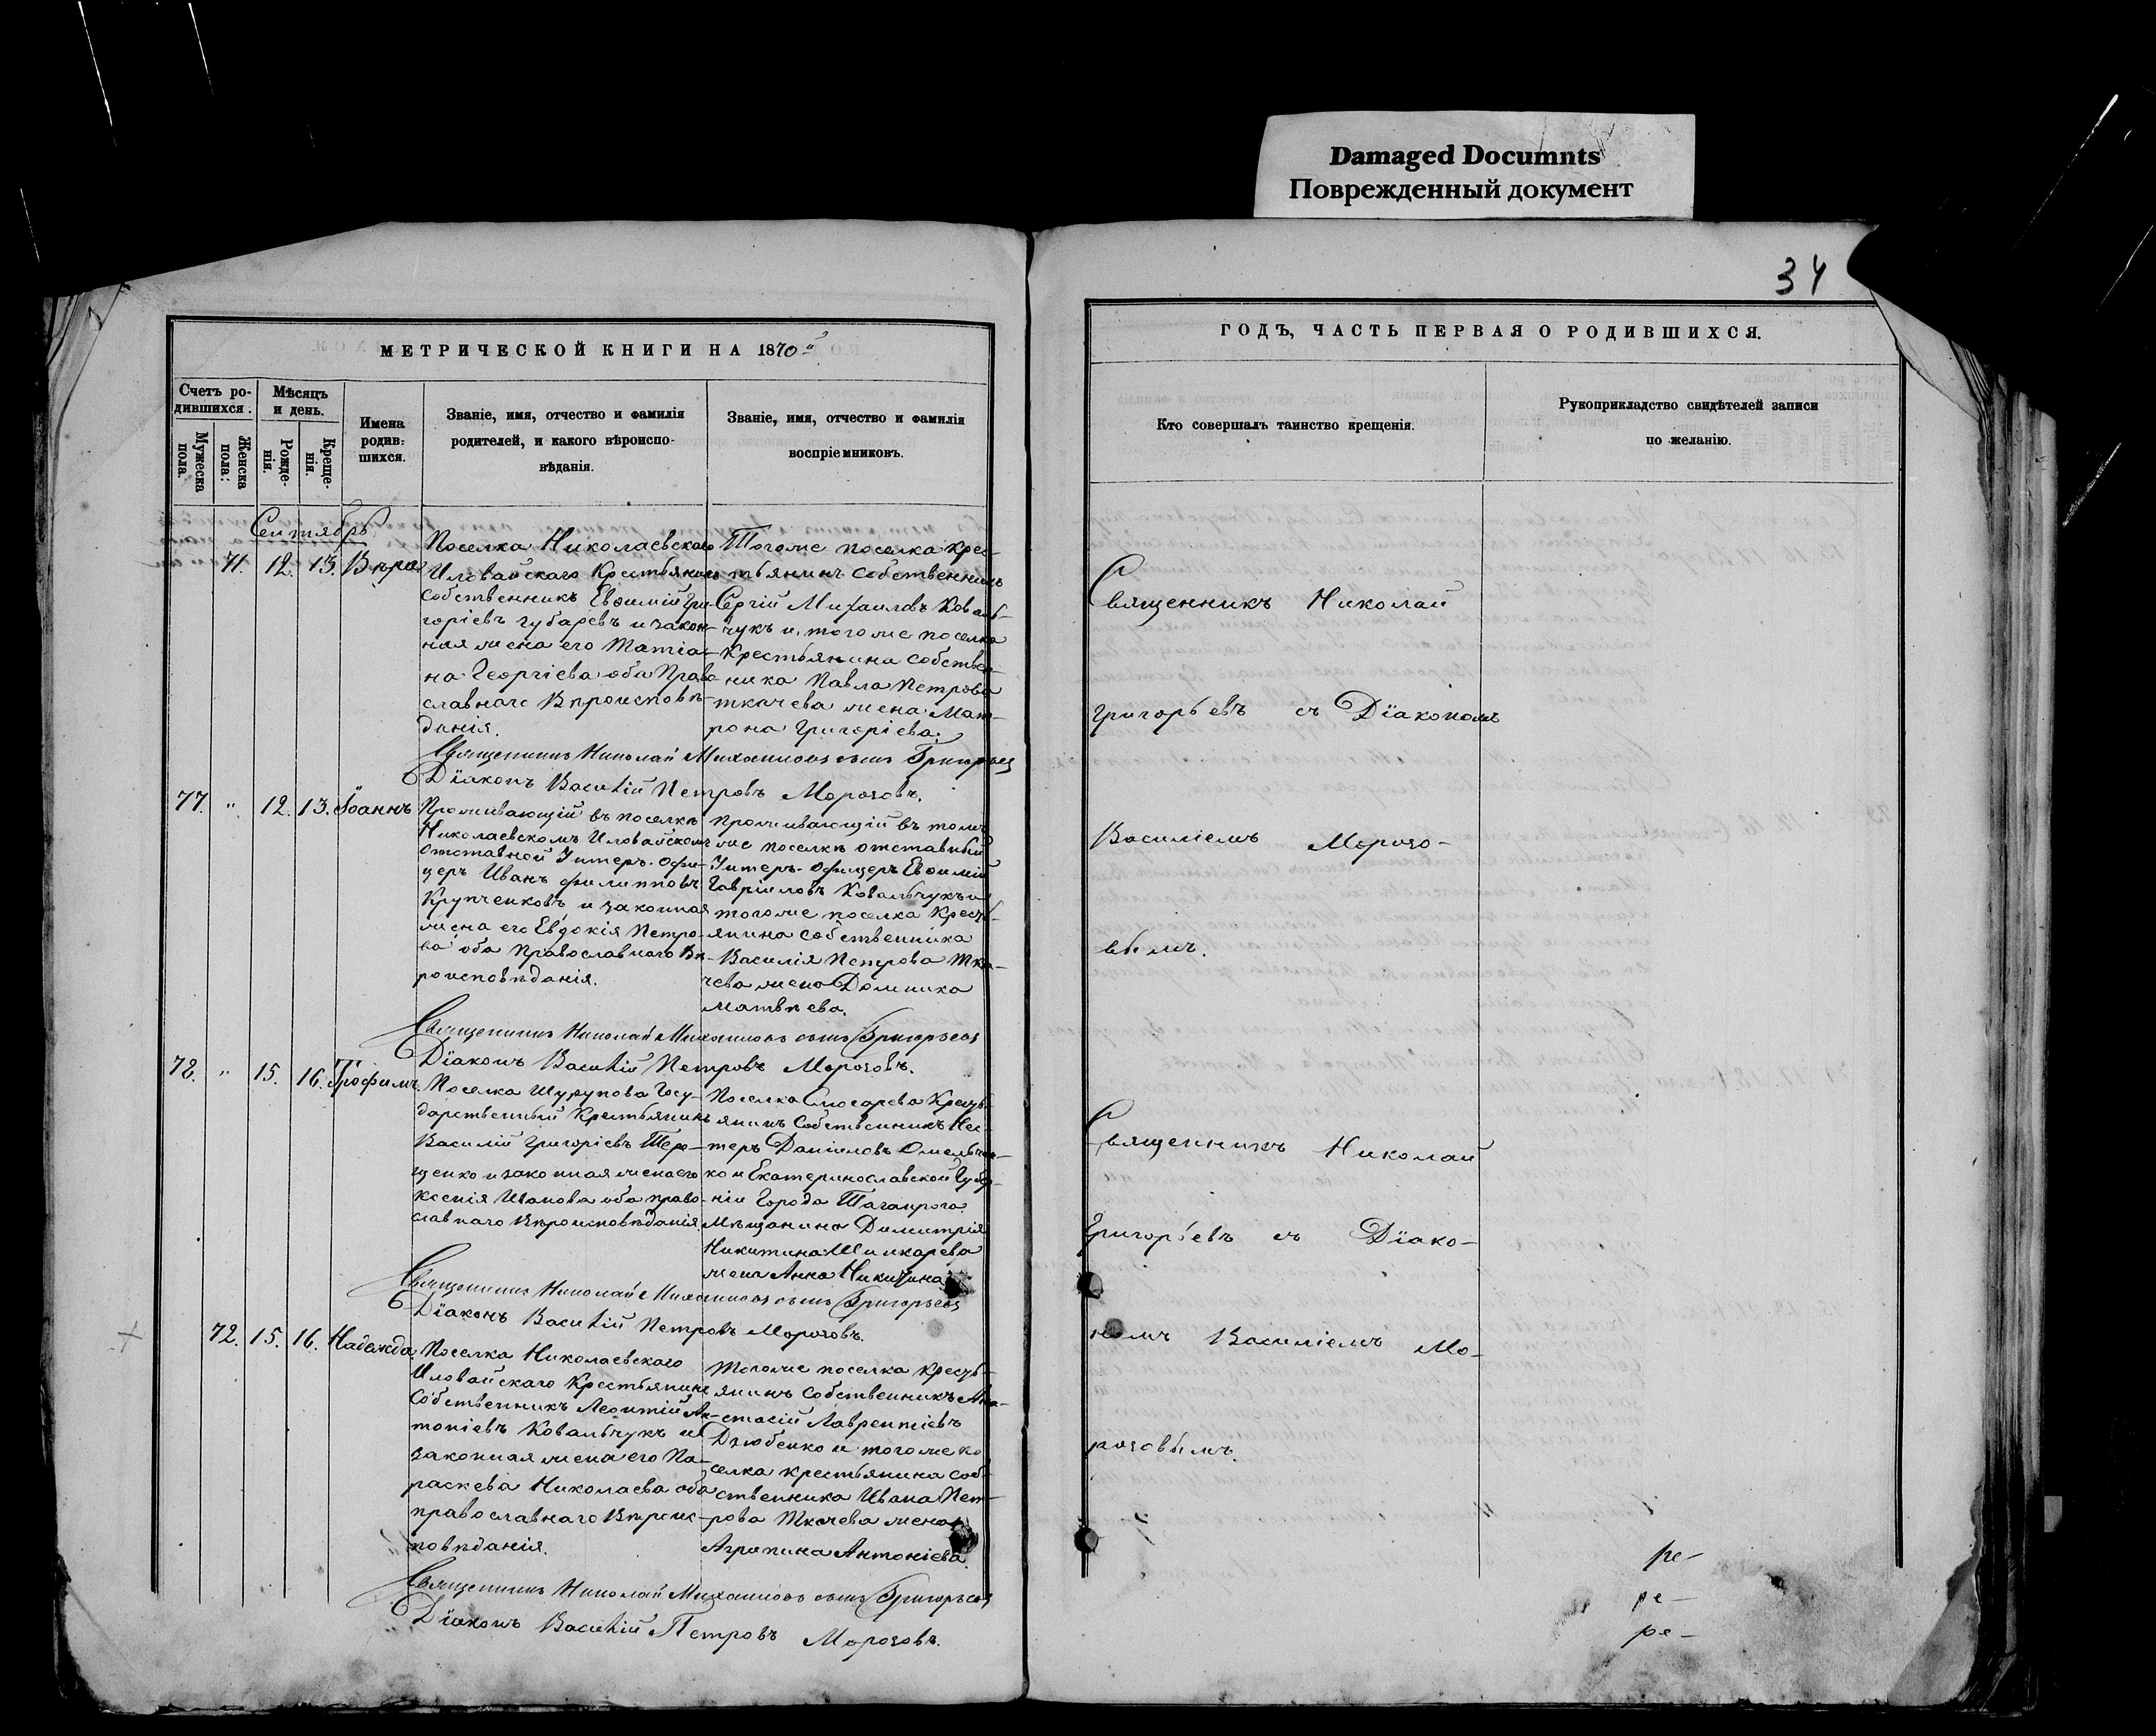 Damaged Documnts
Поврежденный документ
34
МЕТРИЧЕСКОЙ КНИГИ НА 1870 й
Счетъ ро-
дившихся.
Мѣсяцъ
и день.
Мужеска
пола.
Женска
пола.
Рожде-
нія.
Креще-
нія.
Имена
родив-
шихся.
Званіе, имя, отчество и фамилія
родителей, и какого вѣроиспо-
вѣданія.
Званіе, имя, отчество и фамилія
воспріемниковъ.
Сентябрь
71. 12. 13. Вѣра
Поселка Николаевскаго
Иловайскаго Крестьянинъ
собственникъ Евѳимій Гри-
горіевъ Губаревъ и закон-
ная жена его Татіа-
на Георгіева оба Право-
славнаго Вѣроисповѣ-
данія.
Тогоже поселка крес-
тьянинъ собственникъ
Сергій Михаиловъ Коваль-
чукъ и тогоже поселка
Крестьянина собствен-
ника Павла Петрова
Ткачева жена Мат-
рона Григоріева.
Священникъ Николай Михаиловъ сынъ Григорьевъ
Діаконъ Василій Петровъ Морозовъ.
77. " 12. 13. Іоаннъ
Проживающій въ поселкѣ
Николаевскомъ Иловайскомъ
отставной Унтеръ-Офи-
церъ Иванъ Филипповъ
Крупченковъ и законная
жена его Евдокія Петро-
ва оба Православнаго Вѣ-
роисповѣданія.
Проживающій въ томъ
же поселкѣ отставный
Унтеръ-Офицеръ Евѳимій
Гавріиловъ Ковальчукъ и
тогоже поселка Кресть-
янина собственника
Василія Петрова Тка-
чева жена Домника
Матвѣева.
Священникъ Николай Михаиловъ сынъ Григорьевъ
Діаконъ Василій Петровъ Морозовъ.
72. " 15. 16. Трофимъ.
Поселка Шурупова Госу-
дарственный Крестьянинъ
Василій Григоріевъ Тере-
щенко и законная жена его
Ксенія Иванова оба право-
славнаго Вѣроисповѣданія.
Поселка Слюсарева Кресть-
янинъ Собственникъ Нес-
теръ Даніиловъ Омельчен-
ко и Екатеринославской Губер-
ніи Города Таганрога
Мѣщанина Димитрія
Никитина
жена Анна Никитина
Священникъ Николай Михаиловъ сынъ Григорьевъ
Діаконъ Василій Петровъ Морозовъ.
72. 15. 16. Надежда.
Поселка Николаевскаго
Иловайскаго Крестьянинъ
Собственникъ Леонтій Ан-
тоніевъ Ковальчукъ и
законная жена его Па-
раскева Николаева оба
православнаго Вѣроис-
повѣданія.
Тогоже поселка Кресть-
янинъ Собственникъ Ана-
стасій Лаврентіевъ
Дзюбенко и тогоже по
селка крестьянина соб-
ственника Ивана Пет-
рова Ткачева жена
Агрипина Антоніева.
Священникъ Николай Михаиловъ сынъ Григорьевъ
Діаконъ Василій Петровъ Морозовъ.
ГОДЪ, ЧАСТЬ ПЕРВАЯ О РОДИВШИХСЯ.
Кто совершалъ таинство крещенія.
Рукоприкладство свидѣтелей записи
по желанію.
Священникъ Николай
Григорьевъ съ Діакономъ
Василіемъ Морозо-
вымъ.
Священникъ Николай
Григорьевъ съ Діако-
номъ Василіемъ Мо-
розовымъ.
ре-
ре-
ре-